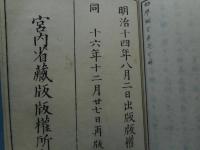 明治十四年八月二日出版版權
同 十六年十二月廿七日再版
宮内省藏版版權所